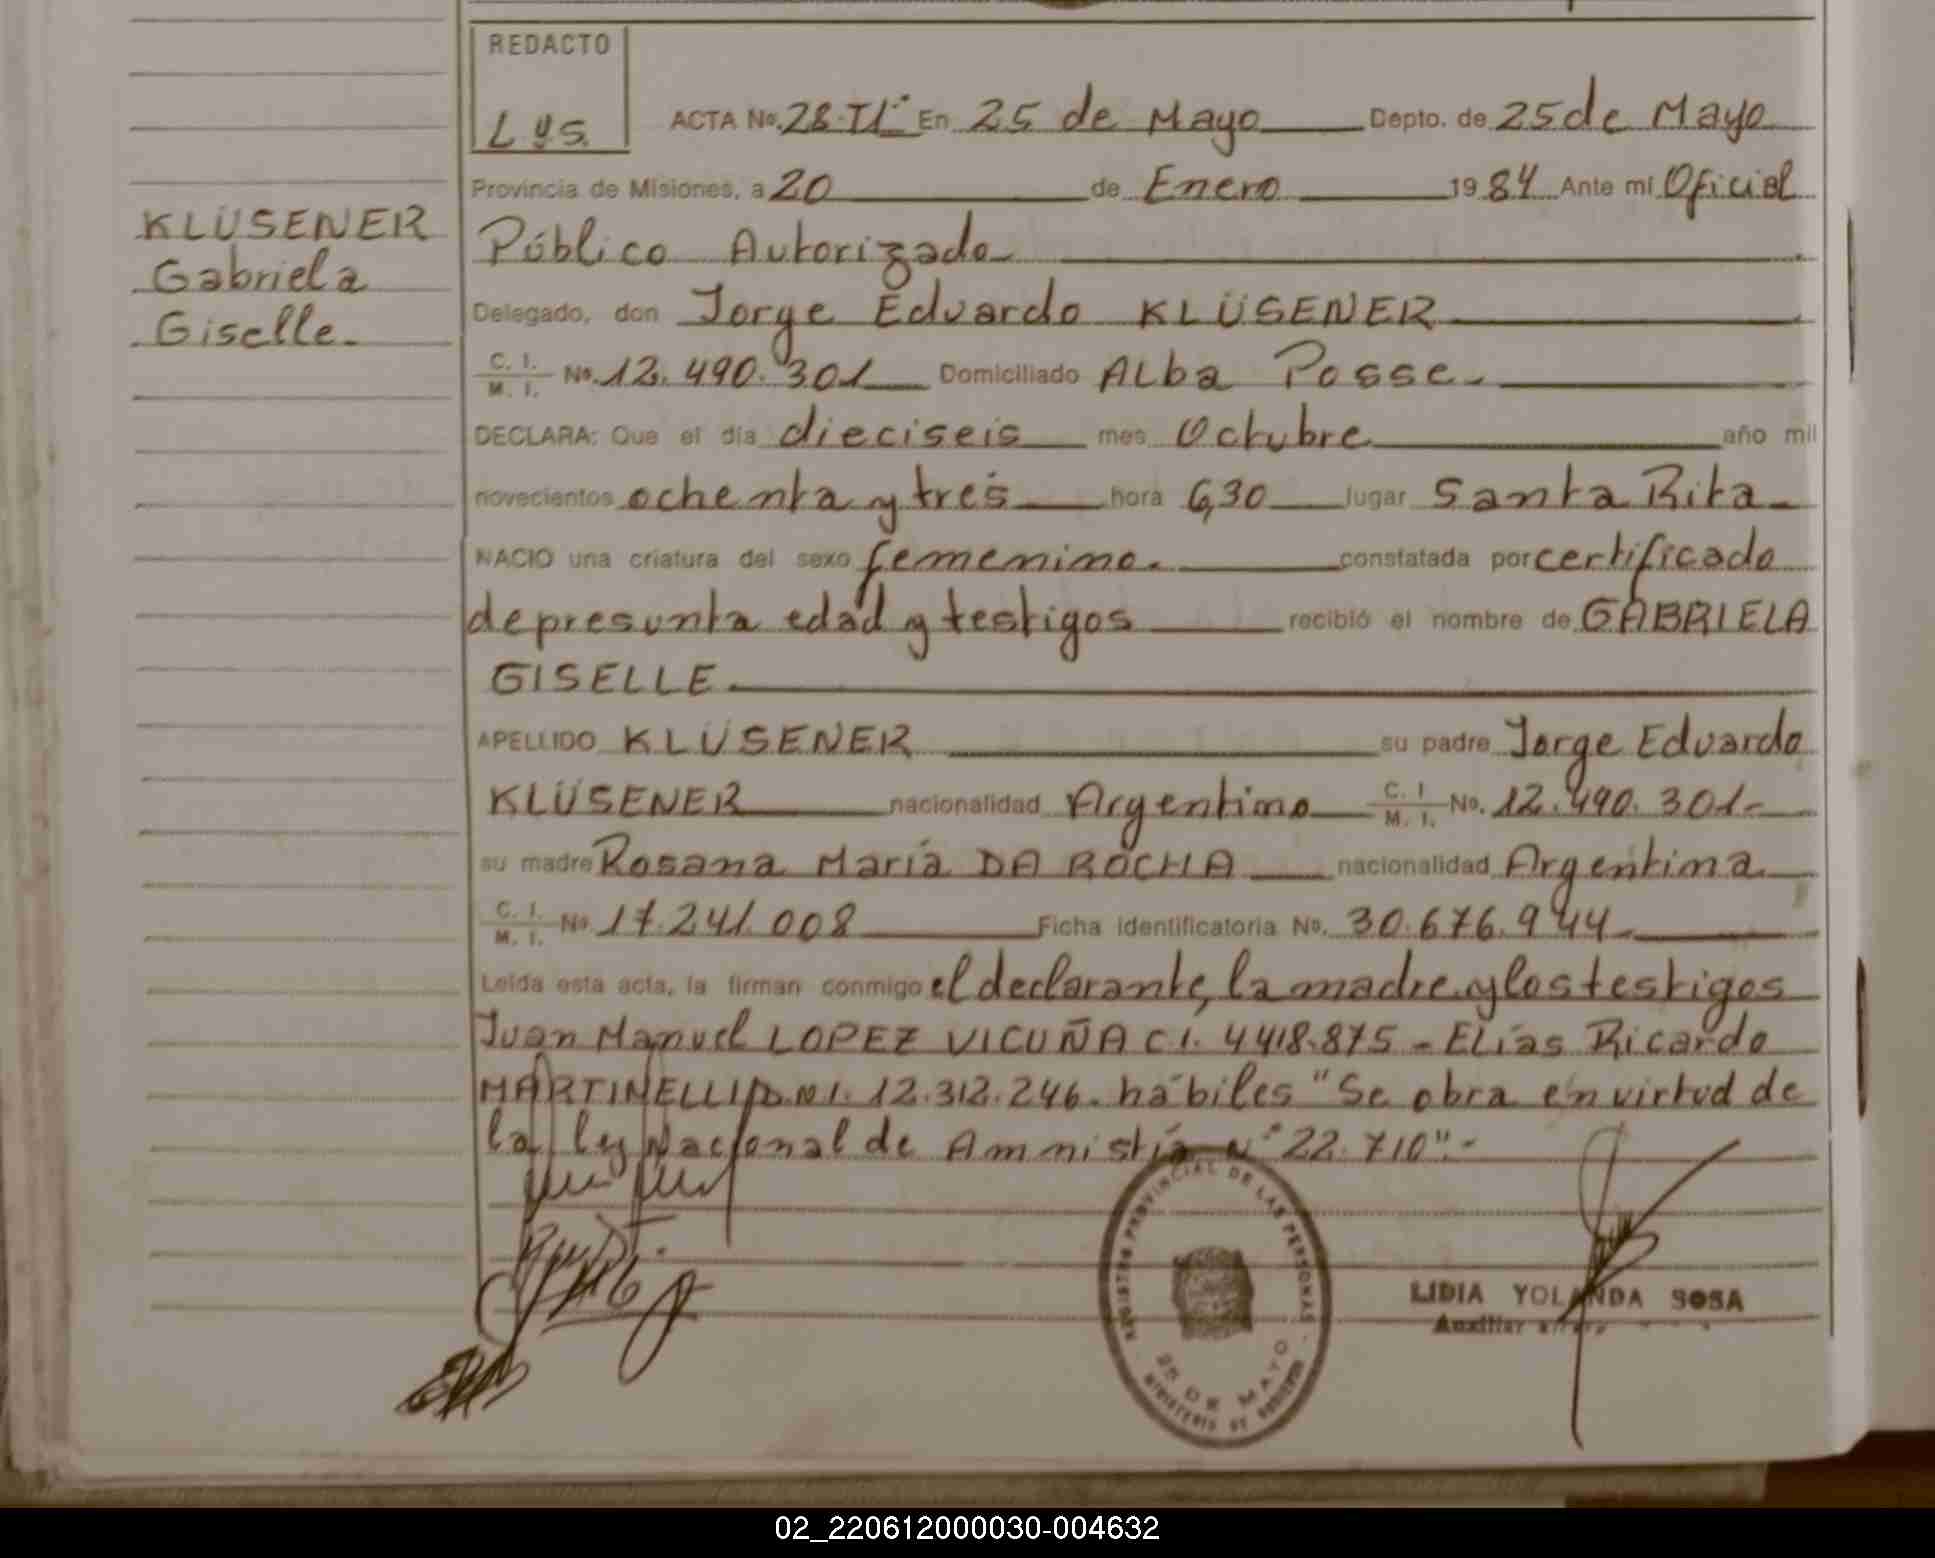 REDACTO
Lys.
ACTA No. 28-TIº En 25 de Mayo Depto. de 25 de Mayo
Provincia de Misiones, a 20 de Enero 1984 Ante mí Oficial
Público Autorizado
Delegado, don Jorge Eduardo KLÜSENER
C. I. / M. I. No. 12.490.301 Domiciliado ALba Posse.-
DECLARA: Que el día dieciseis mes Octubre año mil
novecientos ochenta y tres hora 6,30 lugar Santa Rita-
NACIO una criatura del sexo femenino. constatada por certificado
de presunta edad y testigos recibió el nombre de GABRIELA
GISELLE.
APELLIDO KLÜSENER su padre Jorge Eduardo
KLÜSENER nacionalidad Argentino C. I. / M. I. No. 12.490.301-
su madre Rosana María DA ROCHA nacionalidad Argentina
C. I. / M. I. No. 17.241.008 Ficha identificatoria No. 30.676.944-
Leída esta acta, la firman conmigo el declarante, la madre y los testigos
Juan Manuel LOPEZ VICUÑA C.I. 4.418.875 - ELías Ricardo
MARTINELLI D.N.I. 12.312.246. hábiles "Se obra en virtud de
la ley Nacional de Amnistía Nº 22.710".-
KLÜSENER
Gabriela
Giselle.
REGISTRO PROVINCIAL DE LAS PERSONAS
25 DE MAYO
MINISTERIO DE GOBIERNO
LIDIA YOLANDA SOSA
Auxiliar
02_220612000030-004632